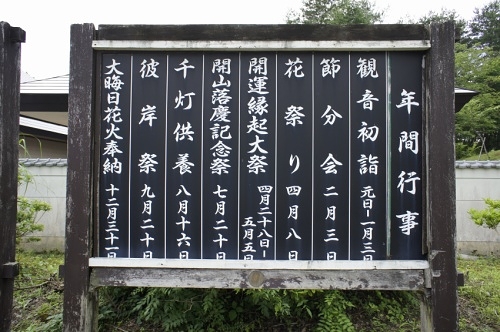 年間行事
観音初詣 元旦-一月三日
節分会 二月三日
花祭り 四月八日
開運縁起大祭 四月二十八日-五月五日
開山落慶記念祭 七月二十日
千灯供養 八月十六日
彼岸祭 九月二十日
大晦日花火奉納 十二月三十一日